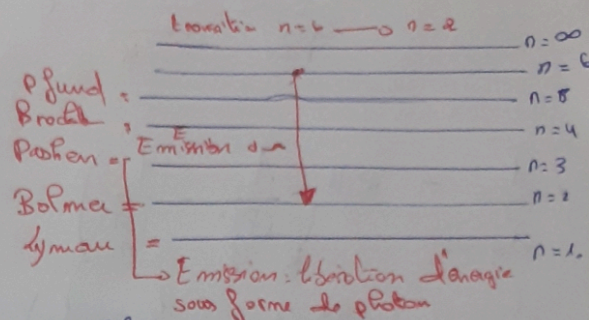 transition n=6 → n=2
n=∞
n=6
Pfund =
n=5
Brackt =
n=4
Emission d'un
Pashen =
n=3
Balmer =
n=2
Lyman =
n=1.
→ Emission : libération d'énergie
sous forme de photon